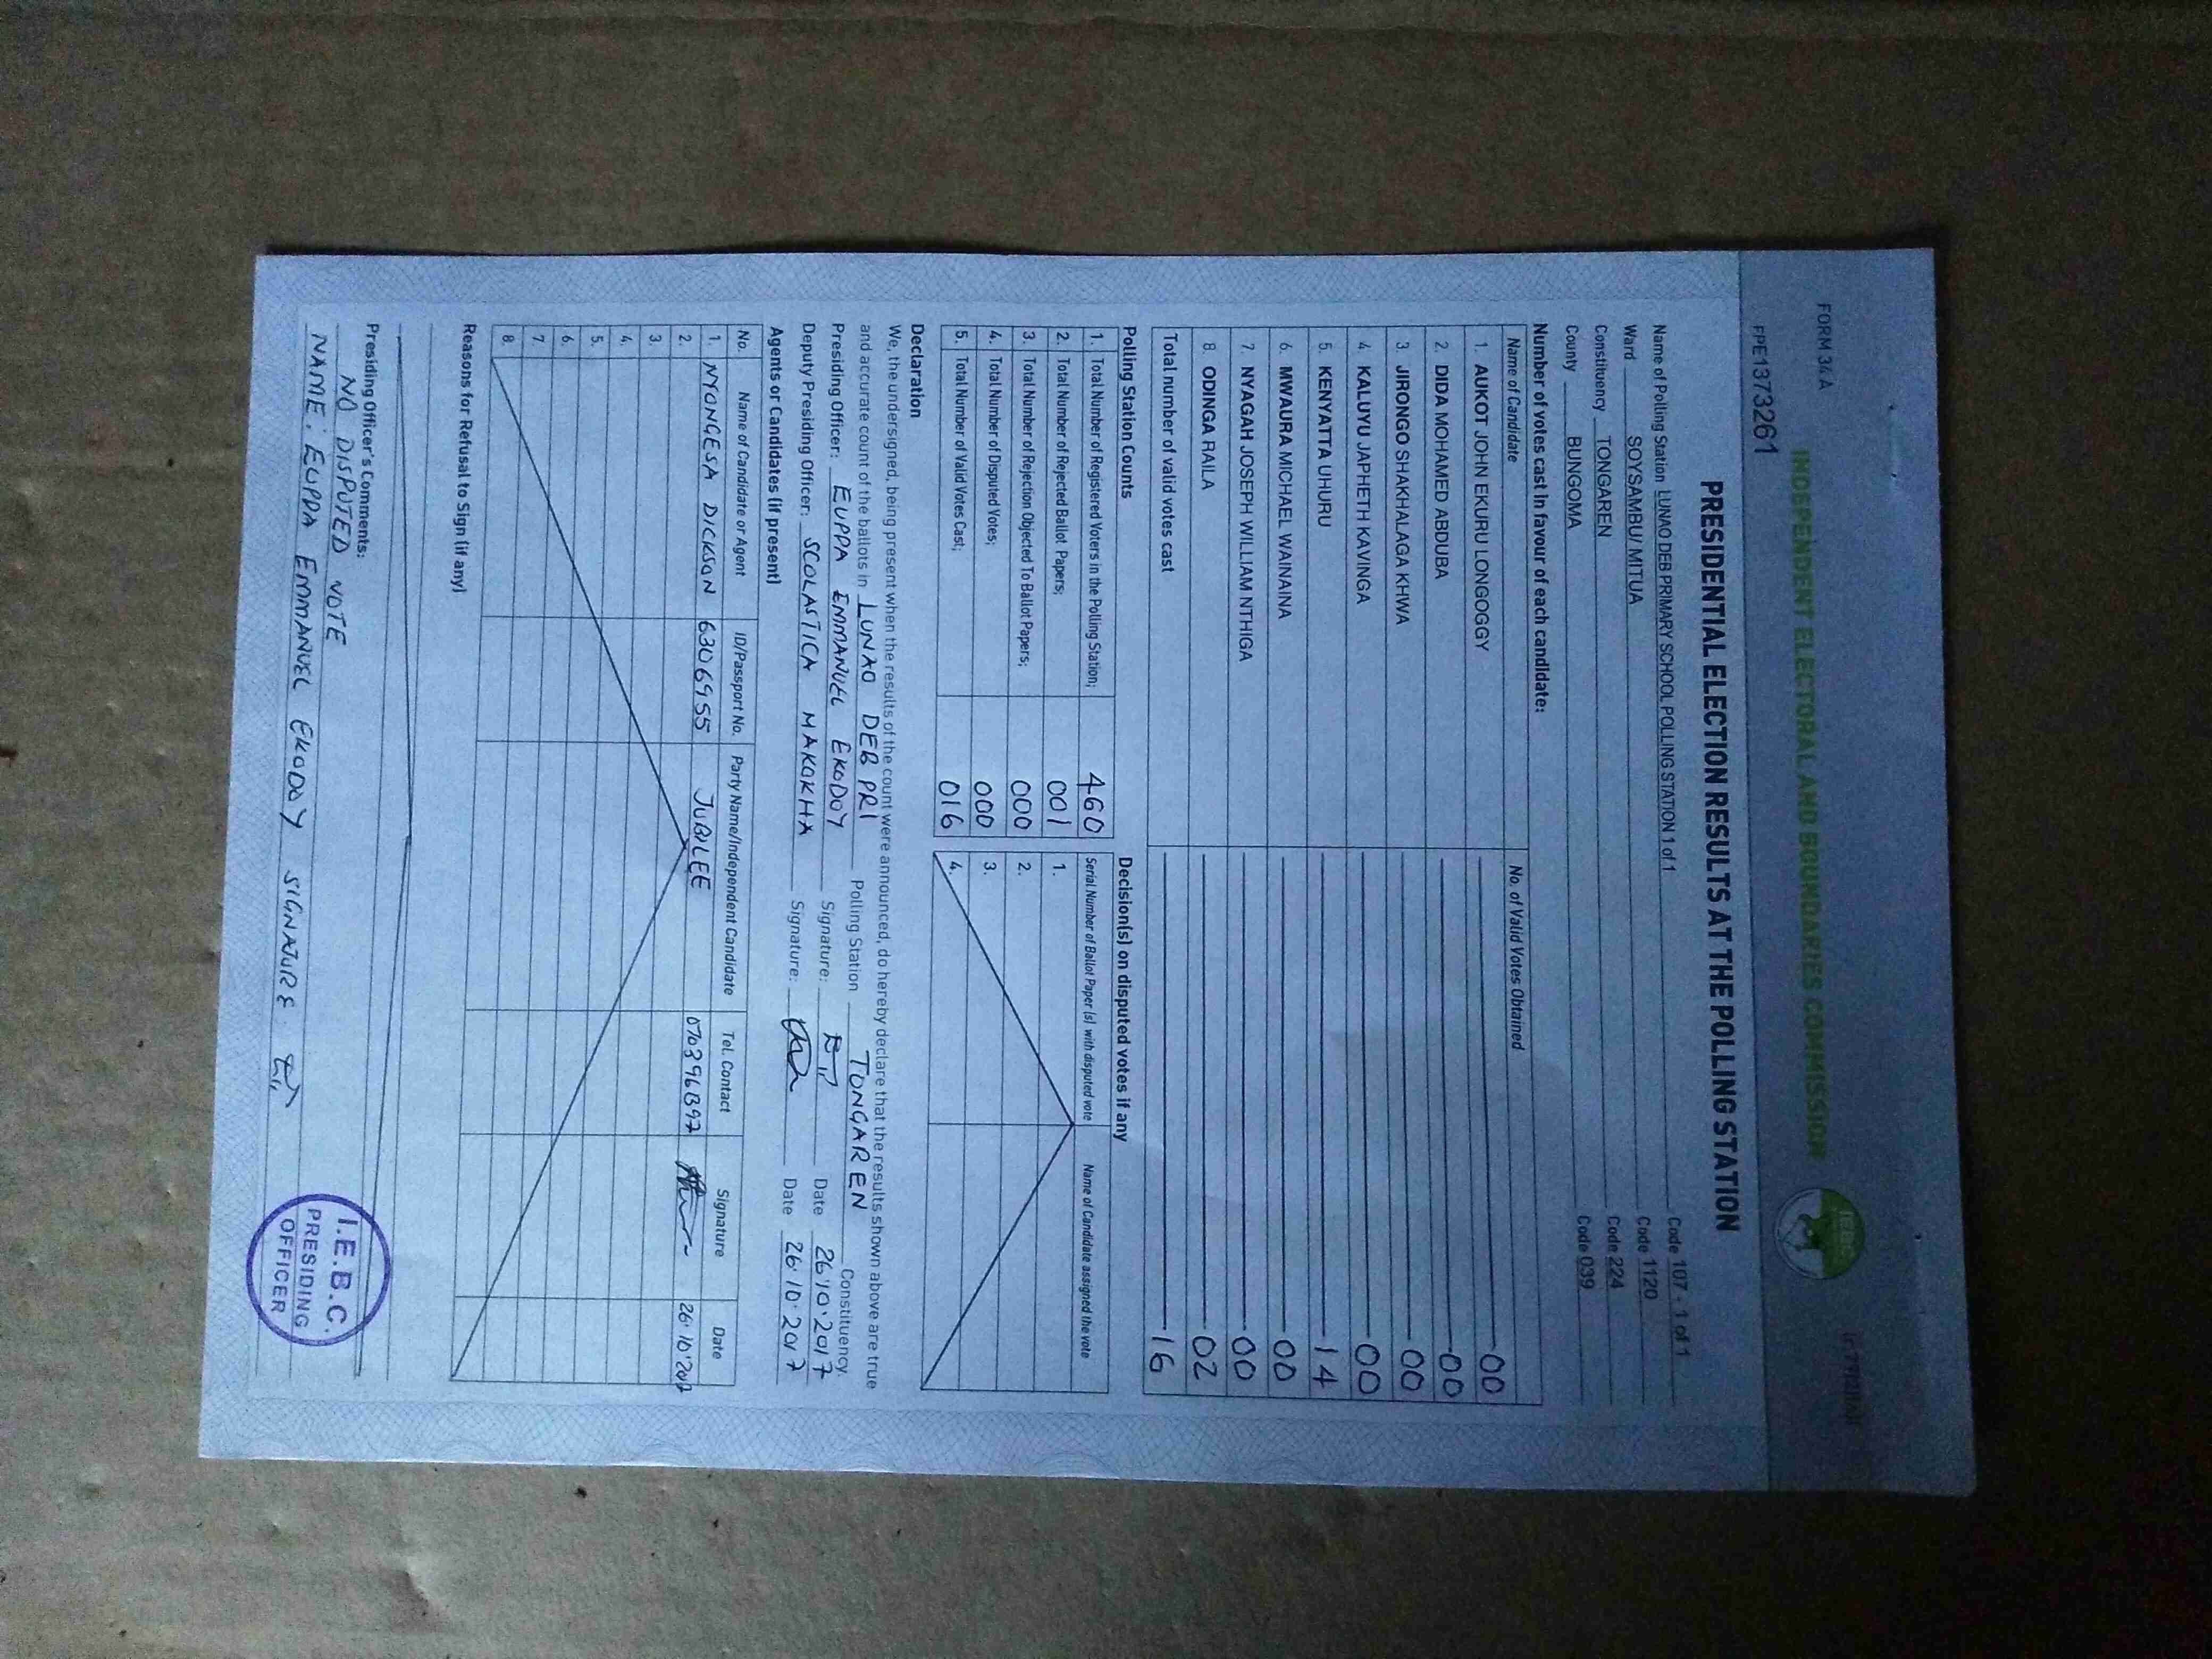 FORM 34A
INDEPENDENT ELECTORAL AND BOUNDARIES COMMISSION
IEBC
FPE1373261
PRESIDENTIAL ELECTION RESULTS AT THE POLLING STATION
Name of Polling Station LUNAO DEB PRIMARY SCHOOL POLLING STATION 1 of 1 Code 107 - 1 of 1
Ward SOYSAMBU/ MITUA Code 1120
Constituency TONGAREN Code 224
County BUNGOMA Code 039
Number of votes cast in favour of each candidate:
Name of Candidate No. of Valid Votes Obtained
1. AUKOT JOHN EKURU LONGOGGY 00
2. DIDA MOHAMED ABDUBA 00
3. JIRONGO SHAKHALAGA KHWA 00
4. KALUYU JAPHETH KAVINGA 00
5. KENYATTA UHURU 14
6. MWAURA MICHAEL WAINAINA 00
7. NYAGAH JOSEPH WILLIAM NTHIGA 00
8. ODINGA RAILA 02
Total number of valid votes cast 16
Polling Station Counts
1. Total Number of Registered Voters in the Polling Station; 460
2. Total Number of Rejected Ballot Papers; 001
3. Total Number of Rejection Objected To Ballot Papers; 000
4. Total Number of Disputed Votes; 000
5. Total Number of Valid Votes Cast; 016
Decision(s) on disputed votes if any
Serial Number of Ballot Paper (s) with disputed vote Name of Candidate assigned the vote
1.
2.
3.
4.
Declaration
We, the undersigned, being present when the results of the count were announced, do hereby declare that the results shown above are true
and accurate count of the ballots in LUNAO DEB PRI Polling Station TONGAREN Constituency.
Presiding Officer: EUPPA EMMANUEL EKODOY Signature: Date 26.10.2017
Deputy Presiding Officer: SCOLASTICA MAKOKHA Signature: Date 26.10.2017
Agents or Candidates (if present)
No. Name of Candidate or Agent ID/Passport No. Party Name/Independent Candidate Tel. Contact Signature Date
1. NYONGESA DICKSON 6306955 JUBILEE 26.10.2017
2.
3.
4.
5.
6.
7.
8.
Reasons for Refusal to Sign (if any)
Presiding Officer's Comments:
NO DISPUTED VOTE
NAME: EUPPA EMMANUEL EKODOY SIGNATURE
I.E.B.C.
PRESIDING
OFFICER